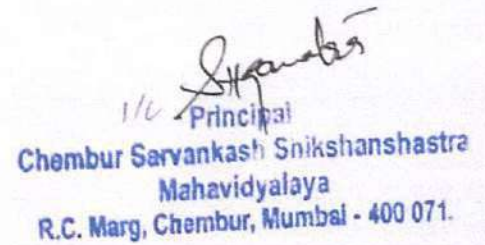 I/C
Principal
Chembur Sarvankash Shikshanshastra
Mahavidyalaya
R.C. Marg, Chembur, Mumbai - 400 071.